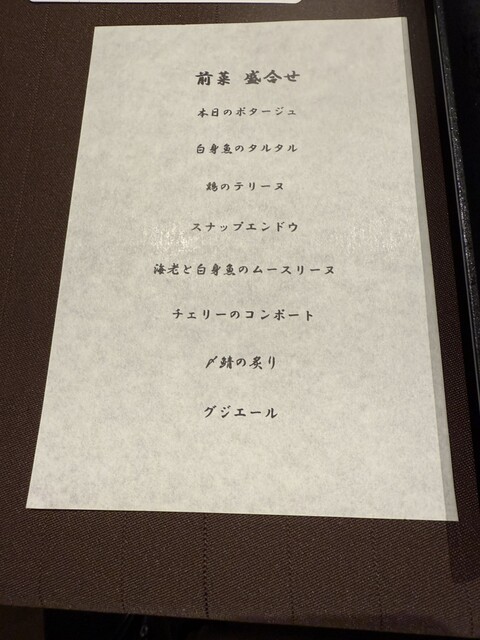 前菜 盛合せ
本日のポタージュ
白身魚のタルタル
鶏のテリーヌ
スナップエンドウ
海老と白身魚のムースリーヌ
チェリーのコンポート
〆鯖の炙り
グジエール